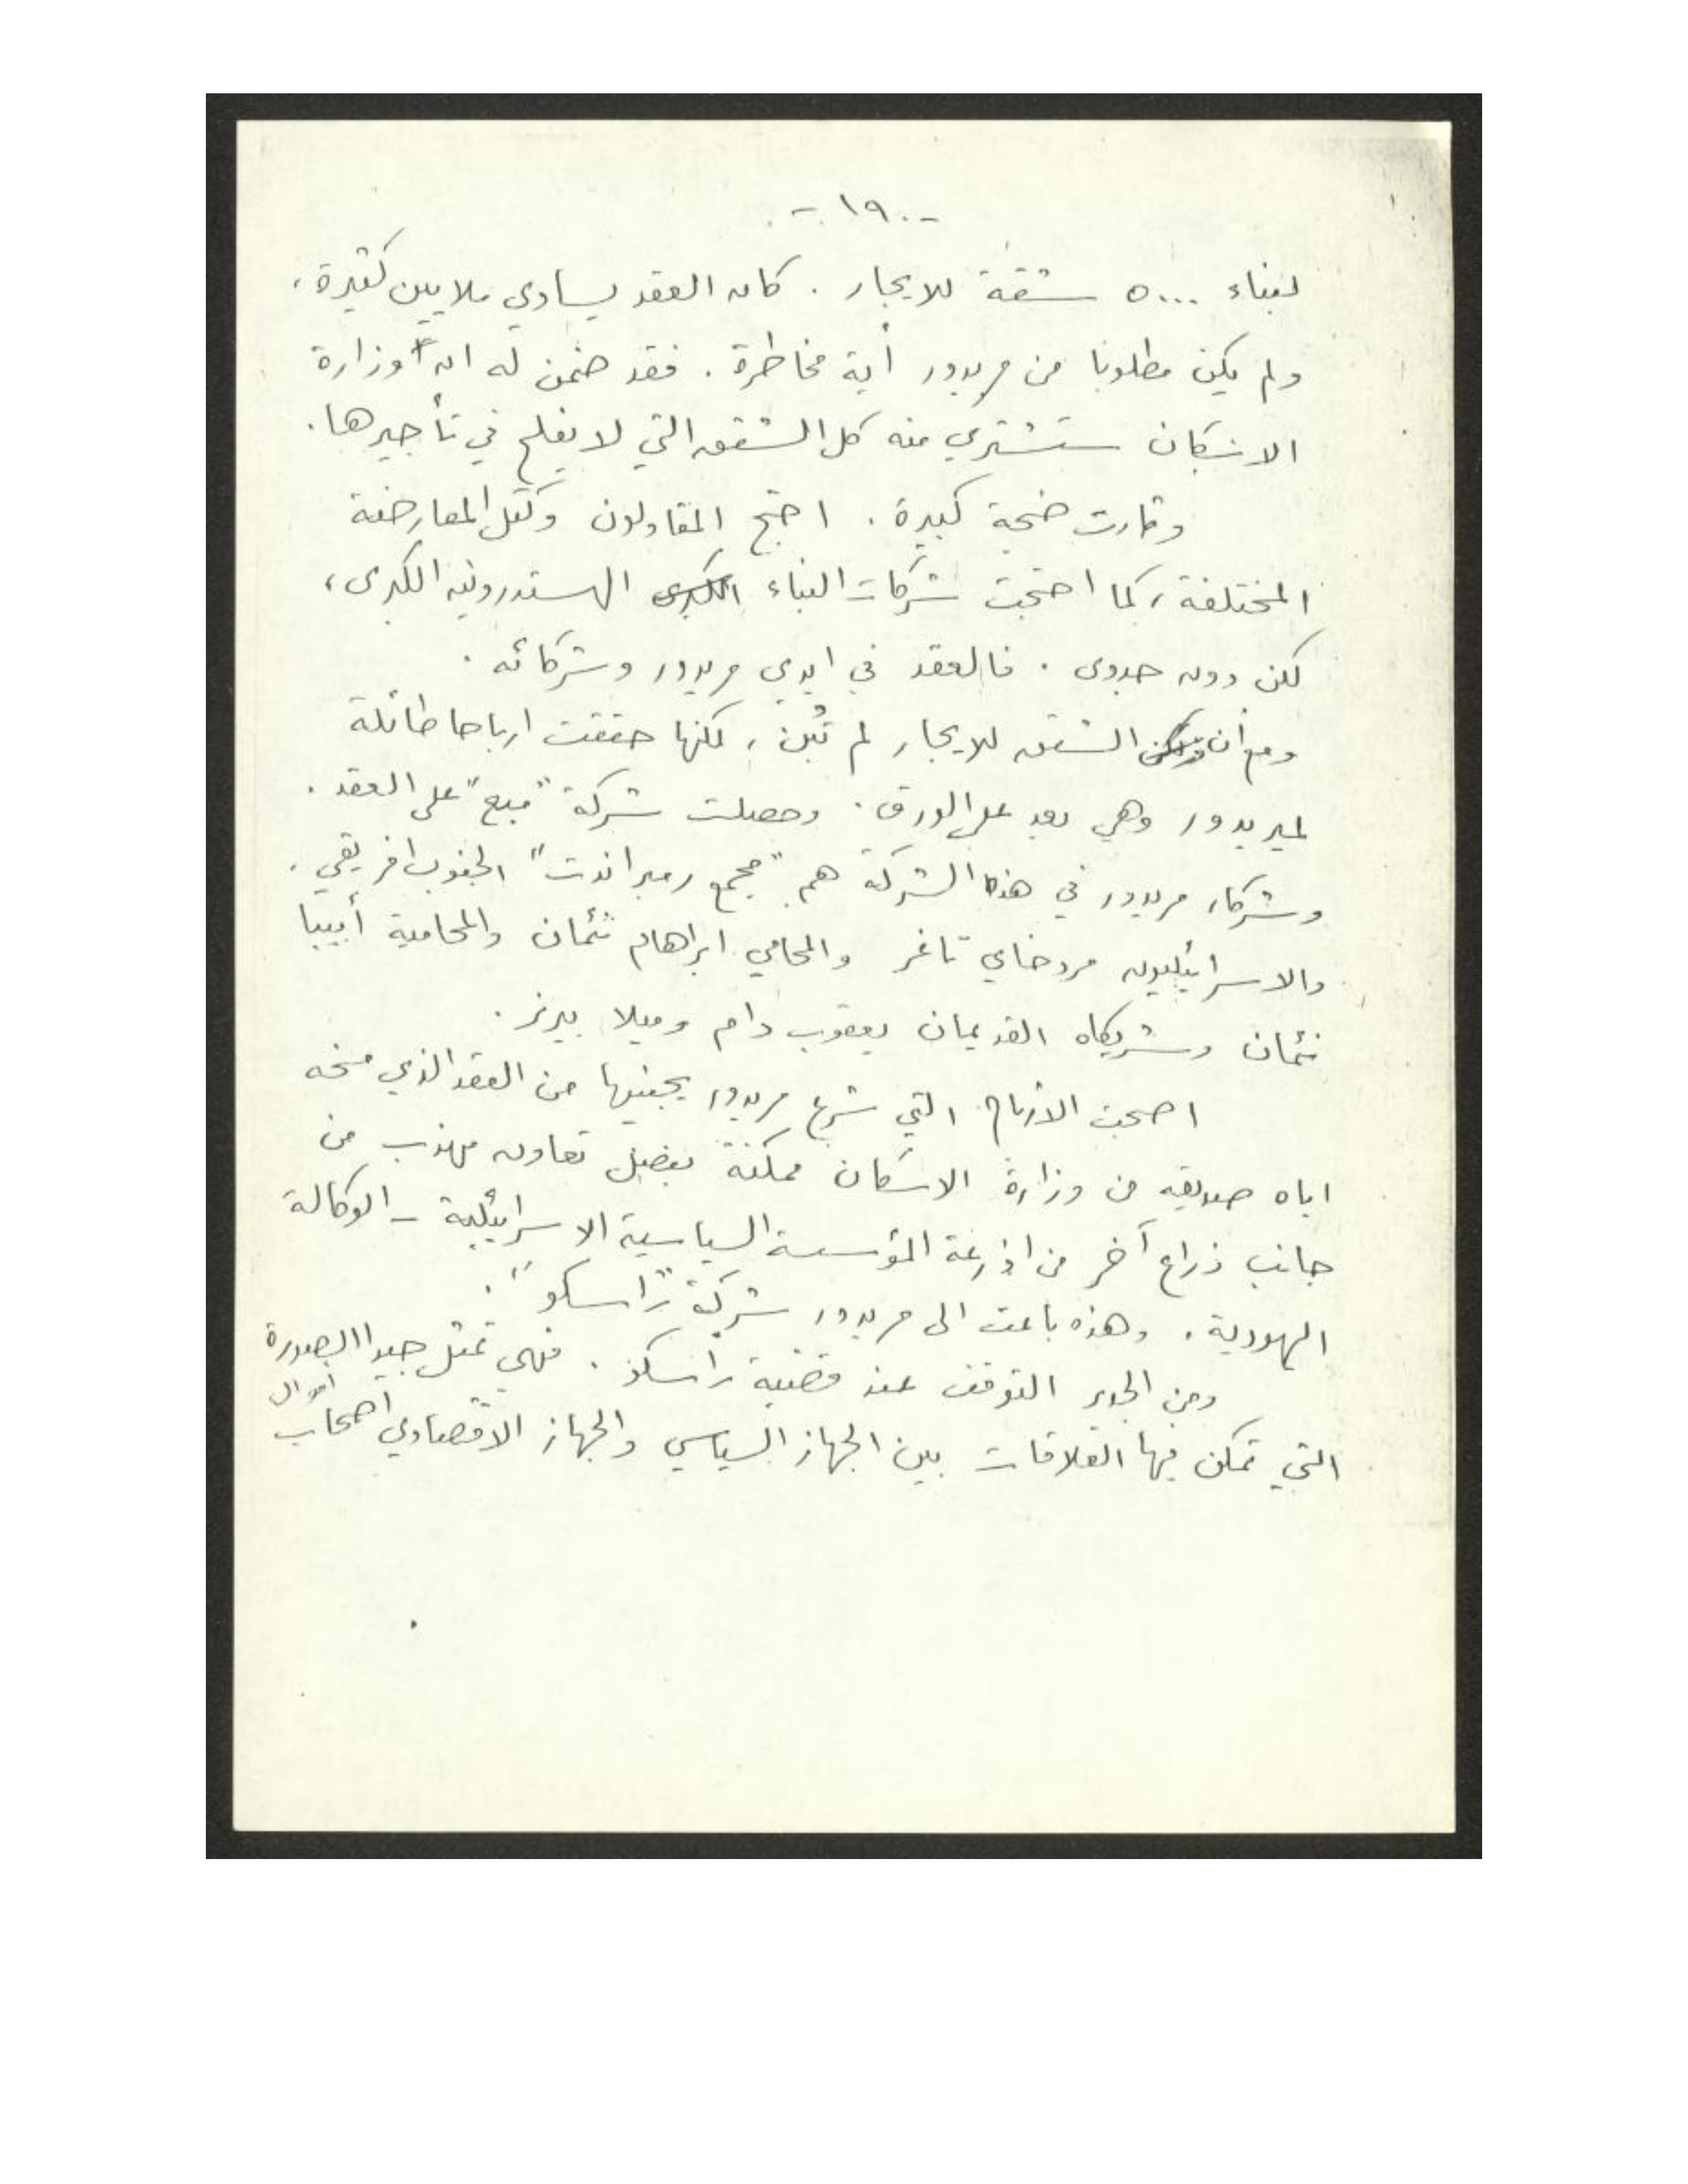 - ١٩٠ -
لبناء ٥٠٠٠ شقة للايجار . كان العقد يساوي ملايين كثيرة ،
ولم يكن مطلوبا من مريدور أية مخاطرة . فقد ضمن له ان وزارة
الاسكان ستشتري منه كل الشقق التي لا يفلح في تأجيرها .
وثارت ضجة كبيرة . احتج المقاولون وكتل المعارضة
المختلفة ، كما احتجت شركات البناء الهستدروتية الكبرى ،
لكن دون جدوى . فالعقد في ايدي مريدور وشركائه .
ومع أن الشقق للايجار لم تُبن ، لكنها حققت ارباحا طائلة
لمريدور وهي بعد على الورق . وحصلت شركة " مبع " على العقد .
وشركاء مريدور في هذه الشركة هم " مجمع رمبراندت " الجنوب افريقي .
والاسرائيليون مردخاي تاغر والمحامي ابراهام نئمان والمحامية أبيبا
نئمان وشريكاه القديمان يعقوب دام وميلا بيرنر .
اصبحت الارباح التي شرع مريدور يجنيها من العقد الذي منحه
اياه صديقه من وزارة الاسكان ممكنة بفضل تعاون مهذب من
جانب ذراع آخر من اذرعة المؤسسة السياسية الاسرائيلية - الوكالة
اليهودية . وهذه باعت الى مريدور شركة " راسكو " .
ومن الجدير التوقف عند قضية راسكو . فهي تمثل جيدا الصورة
التي تمكن فيها العلاقات بين الجهاز السياسي والجهاز الاقتصادي اصحاب اموال